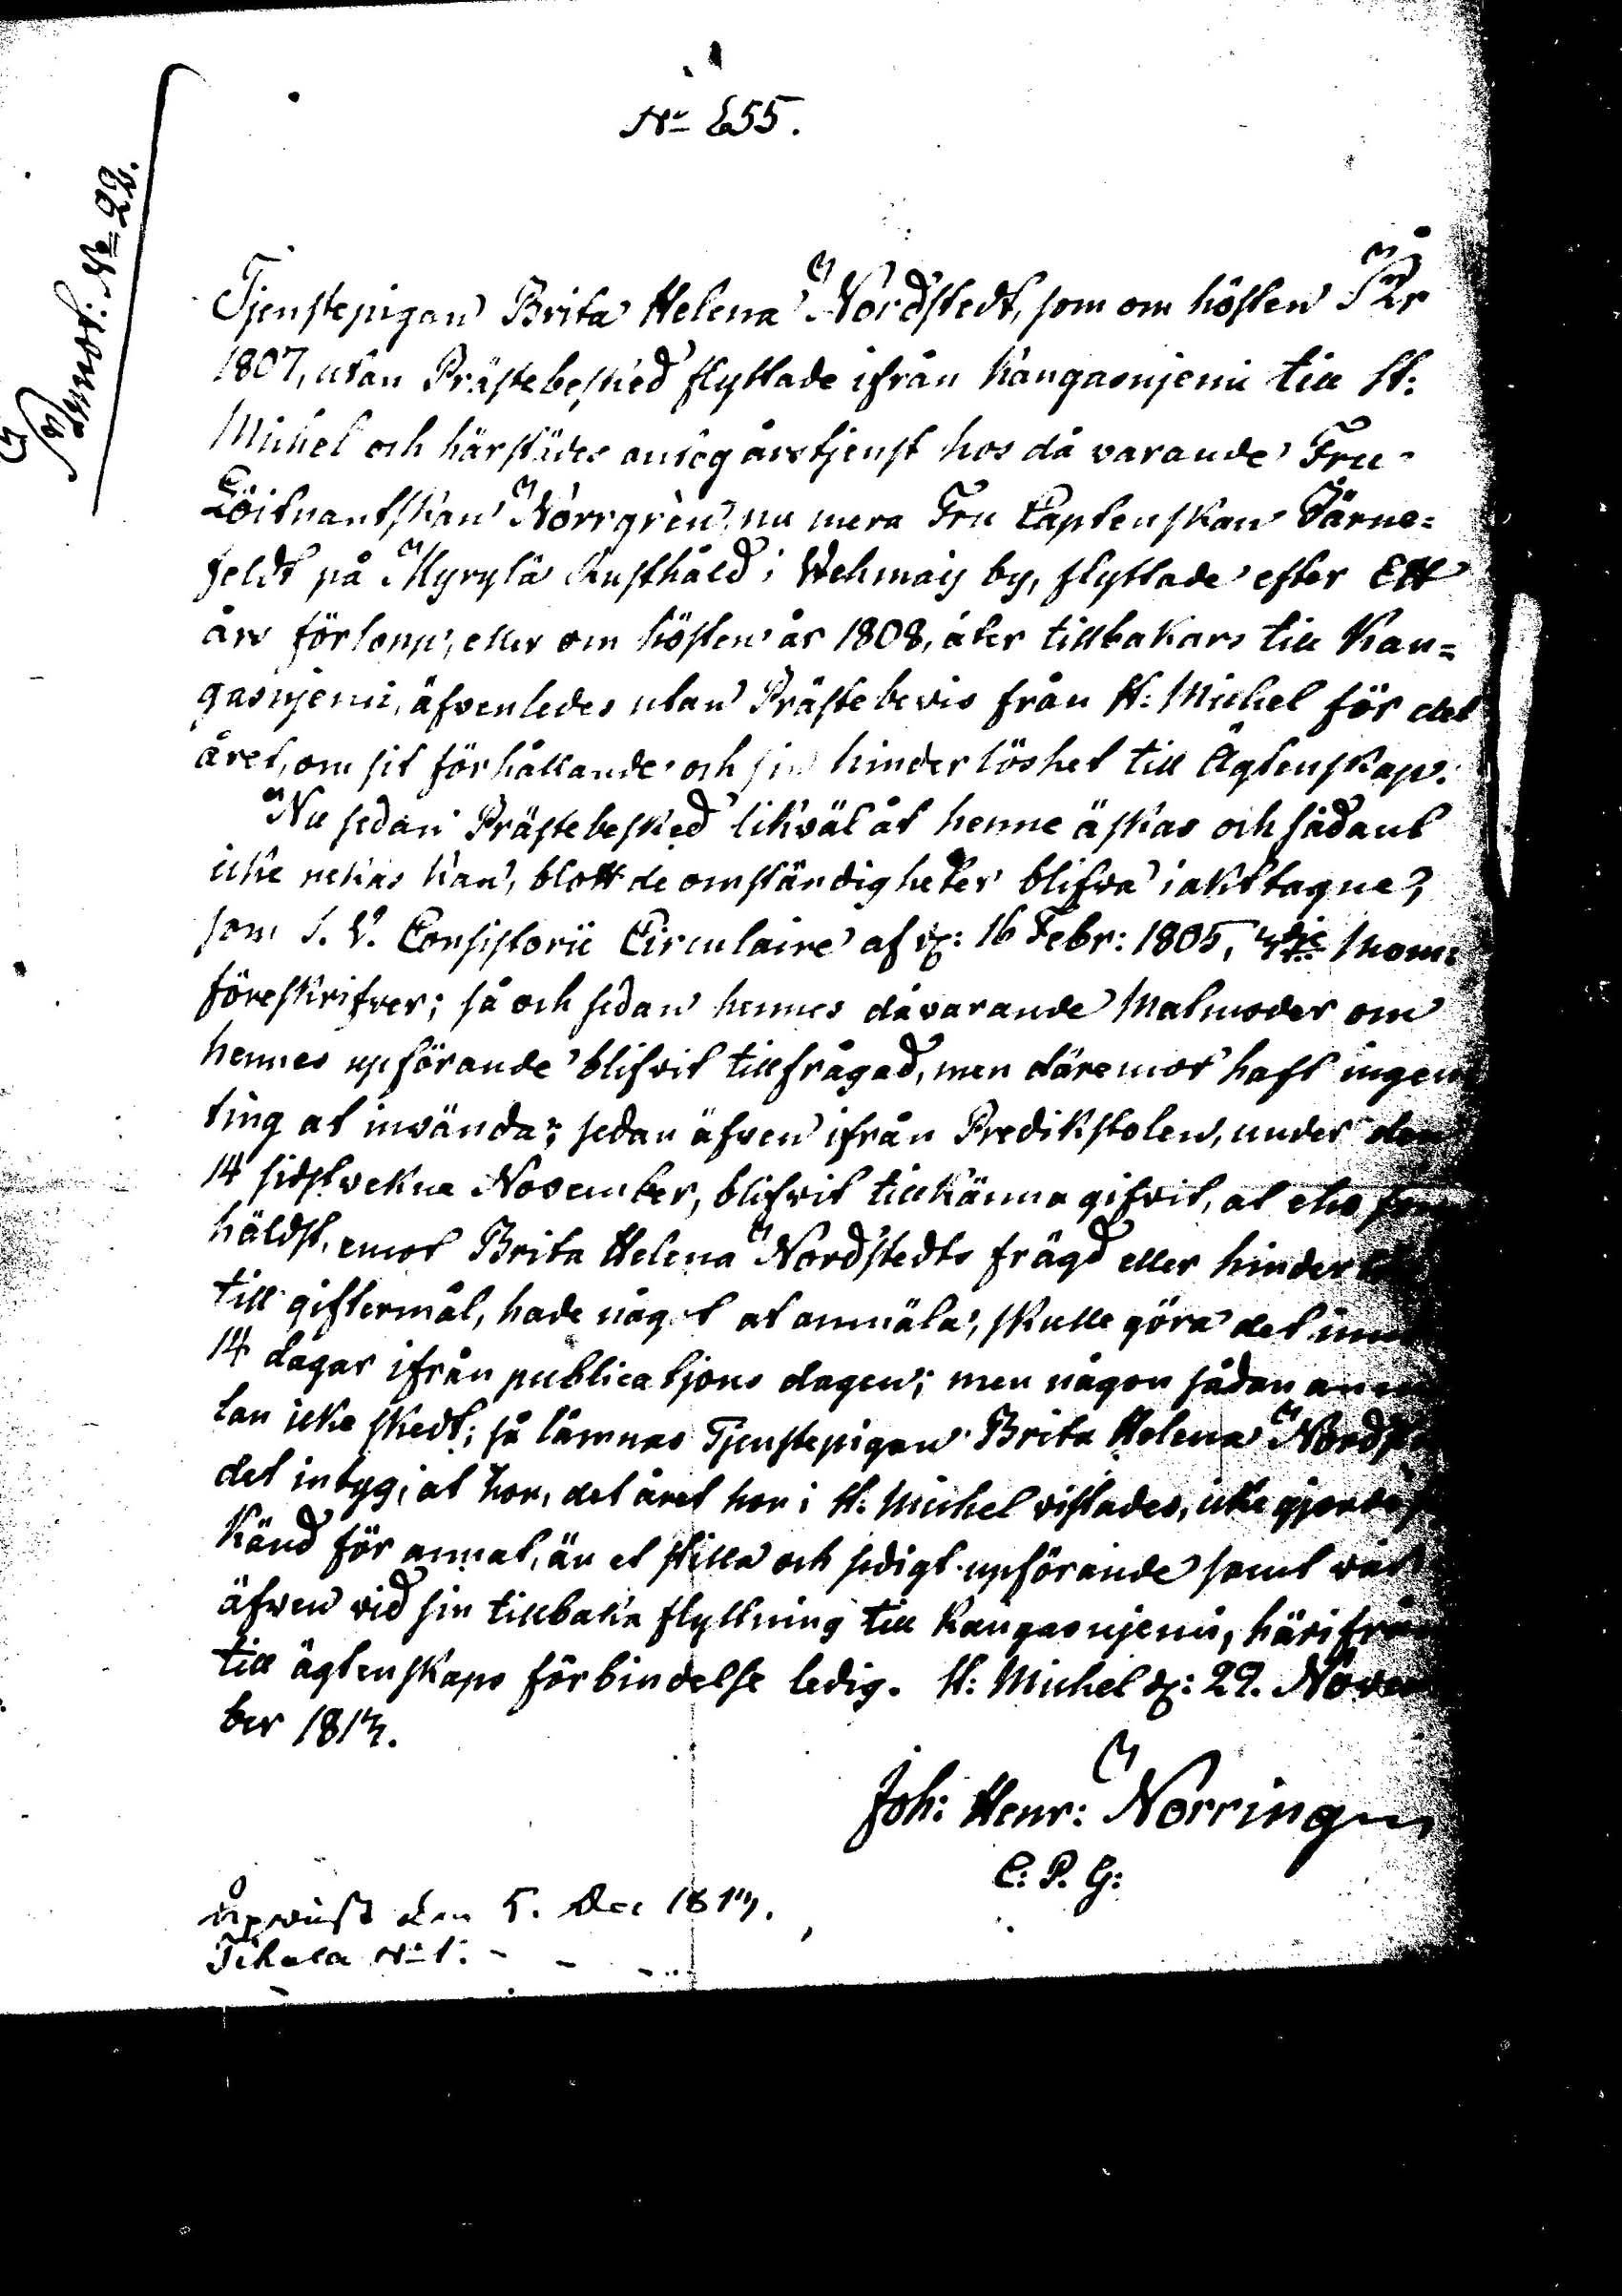 No 255.
No 22.
Tjenstepigan Brita Helena Nordstedt, som om hösten År
1807, utan Prästebesked flyttade ifrån Kangasnjemi till St:
Michel och härstädes antog årstjenst hos då varande Fru
Löitnantskan Norrgrèn, nu mera Fru Captenskan Järne=
feldt på Myrylä Rusthåld i Wehmaij by, flyttade efter Ett
års förlopp, eller om hösten år 1808, åter tillbakars till Kan=
gasnjemi, äfvenledes utan Prästebevis från St: Michel för det
året, om sit förhållande och sin hinderlöshet till Ägtenskap.
Nu sedan Prästebesked likväl åt henne äskas och sådant
icke nekas kan, blott de omständigheter blifva iakttagne,
som S. V. Consistorii Circulaire af d: 16 Febr: 1805, mom:
föreskrifver; så och sedan hennes dåvarande Matmoder om
hennes upförande blifvit tillfrågad, men däremot haft ingen
ting at invända; sedan äfven ifrån Predikstolen, under den
14 sidstvekne November, blifvit tillkänna gifvit, at eho som
häldst, emot Brita Helena Nordstedts frägd eller hinder
till giftermål, hade något at anmäla, skulle göra det inn
14 dagar ifrån publications dagen; men någon sådan anm
lan icke skedt; så lämnas Tjenstepigan Brita Helena Nordst
det intyg, at hon, det året hon i St: Michel vistades, icke gjorde
känd för annat, än et stilla och sedigt upförande samt var
äfven vid sin tillbaka flyttning till Kangasnjemi, härifrån
till ägtenskaps förbindelse ledig. St: Michel d: 29. Novem
ber 1813.
Joh: Henr: Norring
C. P. G:
upvist den 5. Dec 1813.
Tihala No 1.